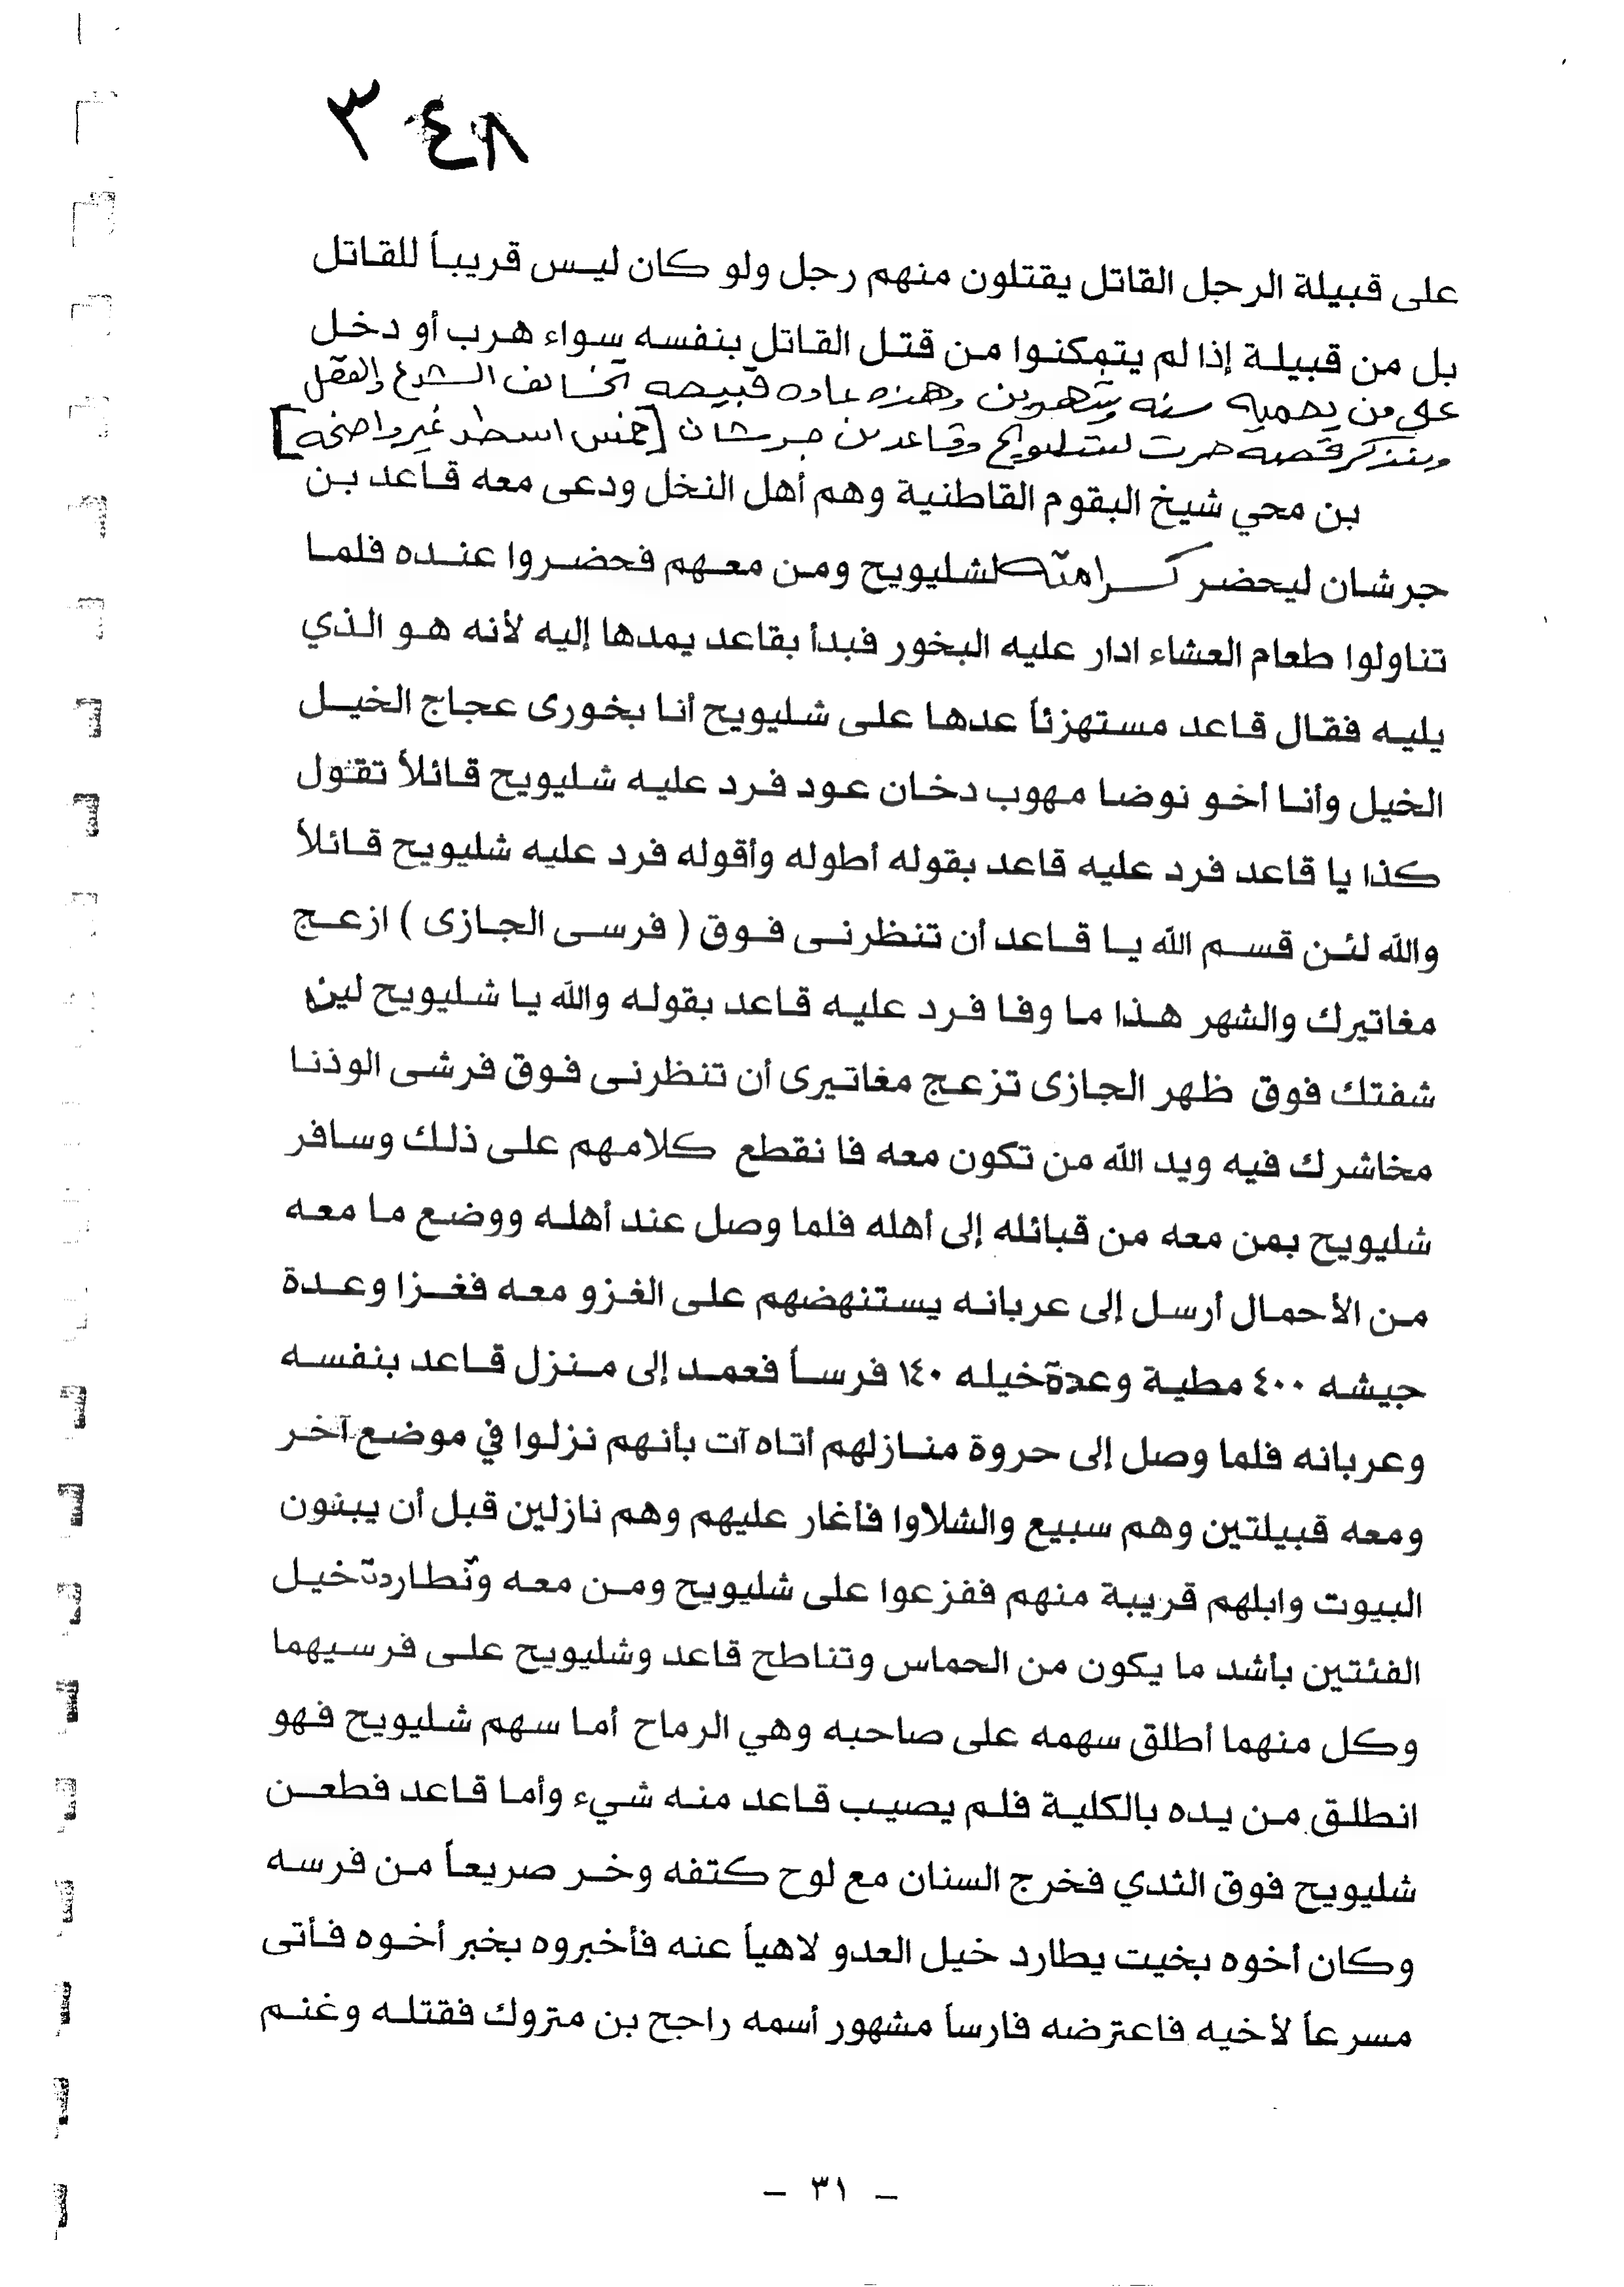 ٣٤٨
على قبيلة الرجل القاتل يقتلون منهم رجل ولو كان ليس قريباً للقاتل
بل من قبيلة إذا لم يتمكنوا من قتل القاتل بنفسه سواء هرب أو دخل
على من يحميه سنه وشهرين وهذه عاده قبيحه تخالف الشرع والعقل
وبتذكر قصه جرت لشليويح وقاعد بن جرشان [خمس اسطر غير واضحه]
بن محي شيخ البقوم القاطنية وهم أهل النخل ودعى معه قاعد بن
جرشان ليحضر كرامته لشليويح ومن معهم فحضروا عنده فلما
تناولوا طعام العشاء ادار عليه البخور فبدأ بقاعد يمدها إليه لأنه هو الذي
يليه فقال قاعد مستهزئاً عدها على شليويح أنا بخورى عجاج الخيل
الخيل وأنا أخو نوضا مهوب دخان عود فرد عليه شليويح قائلاً تقول
كذا يا قاعد فرد عليه قاعد بقوله أطوله وأقوله فرد عليه شليويح قائلاً
والله لئن قسم الله يا قاعد أن تنظرنى فوق ( فرسى الجازى ) ازعج
مغاتيرك والشهر هذا ما وفا فرد عليه قاعد بقوله والله يا شليويح لين
شفتك فوق ظهر الجازى تزعج مغاتيرى أن تنظرنى فوق فرشى الوذنا
مخاشرك فيه ويد الله من تكون معه فا نقطع كلامهم على ذلك وسافر
شليويح بمن معه من قبائله إلى أهله فلما وصل عند أهله ووضع ما معه
من الأحمال أرسل إلى عربانه يستنهضهم على الغزو معه فغزا وعدة
جيشه ٤٠٠ مطية وعدة خيله ١٤٠ فرساً فعمد إلى منزل قاعد بنفسه
وعربانه فلما وصل إلى حروة منازلهم أتاه آت بأنهم نزلوا في موضع آخر
ومعه قبيلتين وهم سبيع والشلاوا فأغار عليهم وهم نازلين قبل أن يبنون
البيوت وابلهم قريبة منهم ففزعوا على شليويح ومن معه وتطاردة خيل
الفئتين بأشد ما يكون من الحماس وتناطح قاعد وشليويح على فرسيهما
وكل منهما أطلق سهمه على صاحبه وهي الرماح أما سهم شليويح فهو
انطلق من يده بالكلية فلم يصيب قاعد منه شيء وأما قاعد فطعن
شليويح فوق الثدي فخرج السنان مع لوح كتفه وخر صريعاً من فرسه
وكان أخوه بخيت يطارد خيل العدو لاهياً عنه فأخبروه بخبر أخوه فأتى
مسرعاً لأخيه فاعترضه فارساً مشهور أسمه راجح بن متروك فقتله وغنم
– ٣١ –